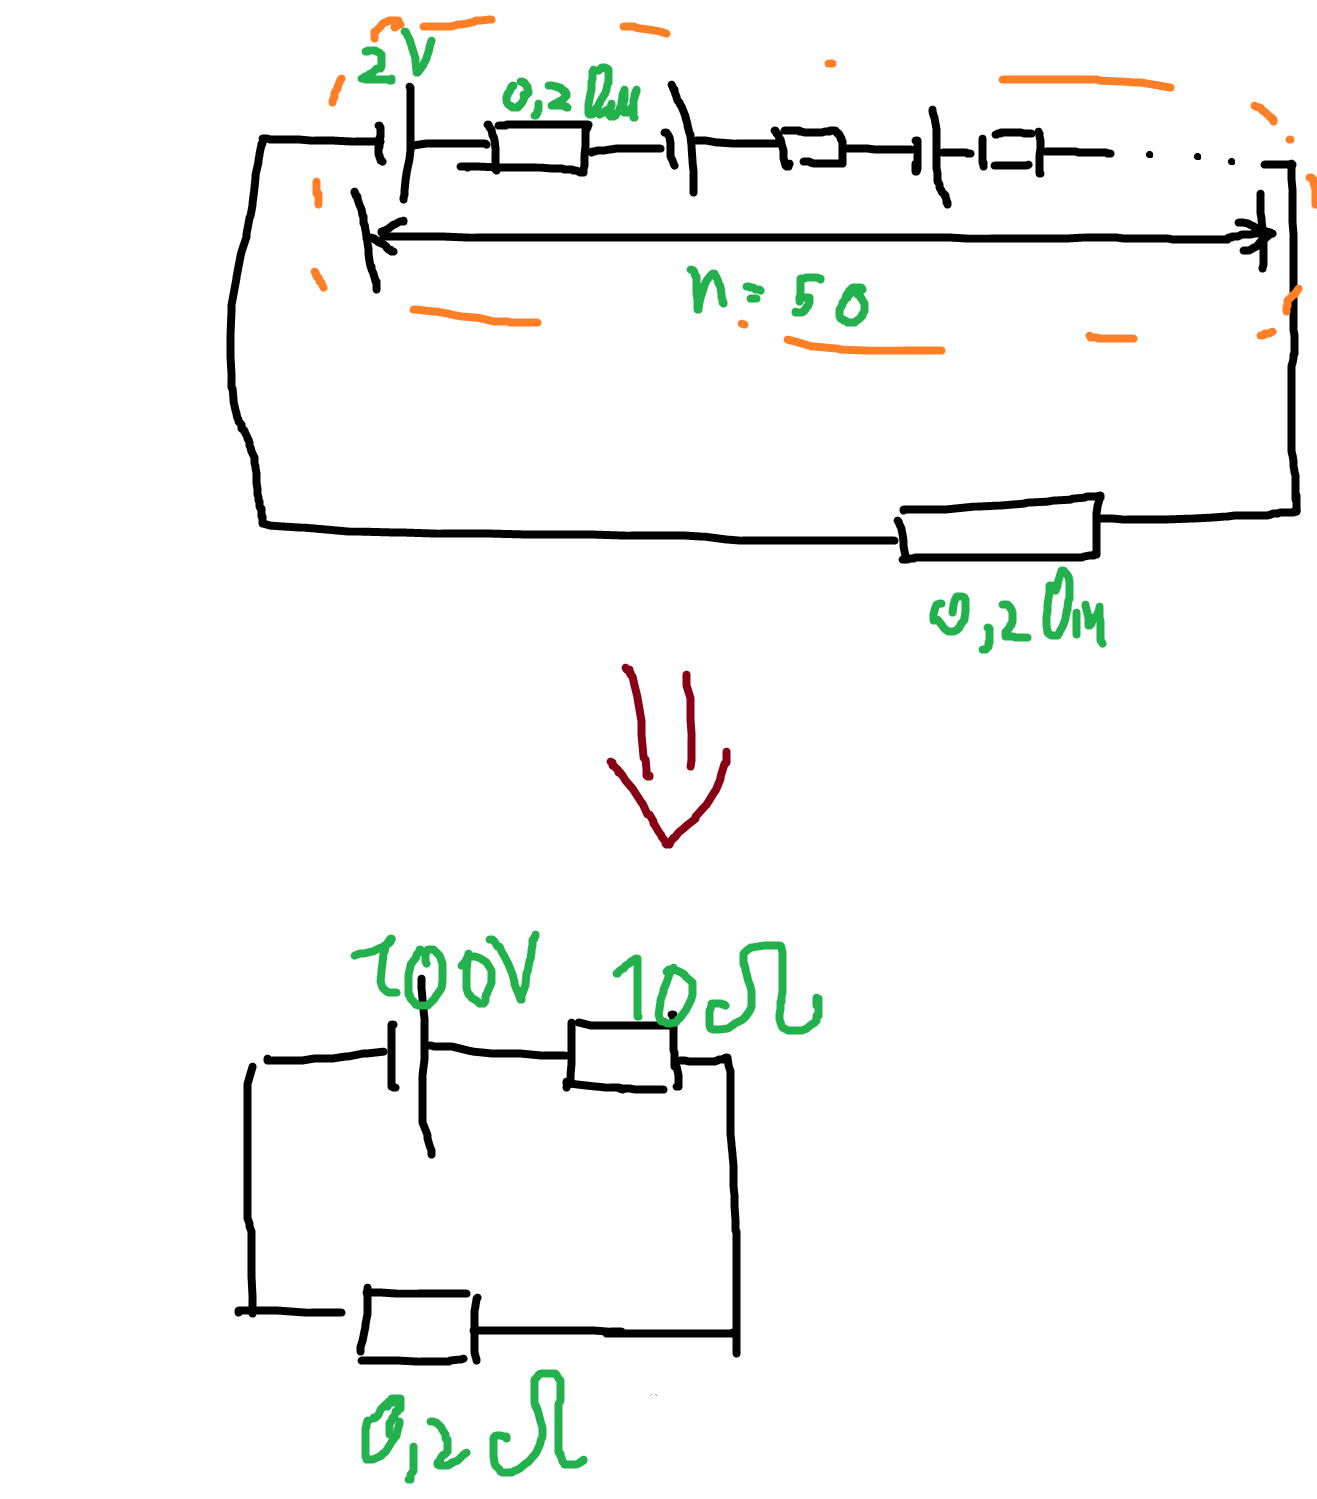 2V
0,2 Ωм
n = 50
0,2 Ом
100V
10Ω
0,2Ω